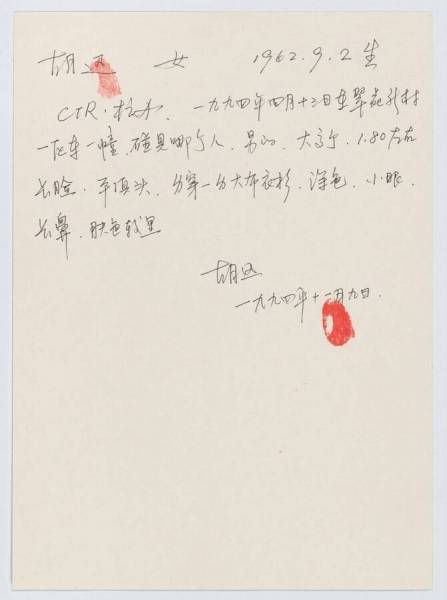 胡 女 1962.9.2生
CTR.杭办.一九九四年四月十三日在翠苑新村
一区一幢,碰见哪个人.男的.大高个,1.80左右
长脸.平顶头.穿一大布衣衫.深色.小眼.
长鼻.肤色较黑
胡
一九九四年十一月九日.